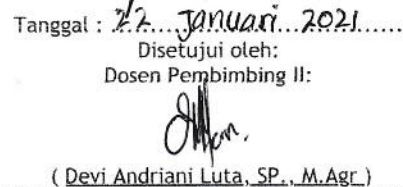 Tanggal : 22 Januari 2021
Disetujui oleh:
Dosen Pembimbing II:
( Devi Andriani Luta, SP., M.Agr )